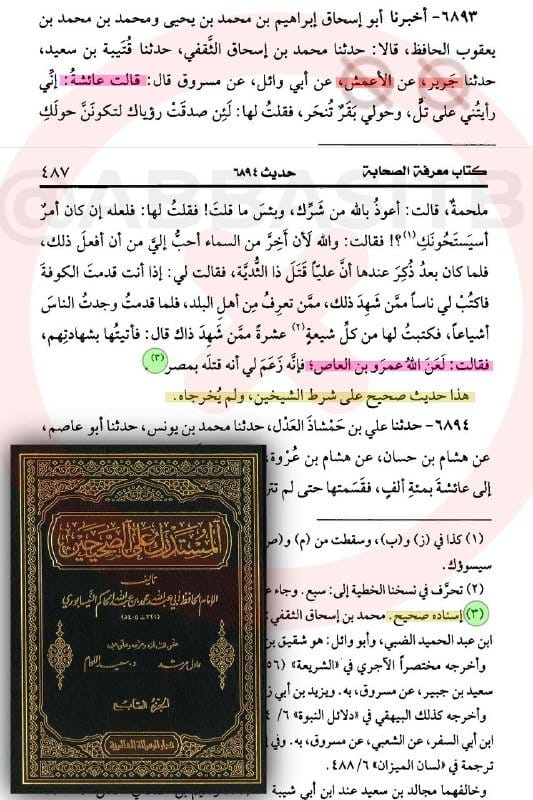 ٦٨٩٣- أخبرنا أبو إسحاق إبراهيم بن محمد بن يحيى ومحمد بن محمد بن
يعقوب الحافظ، قالا: حدثنا محمد بن إسحاق الثَّقفي، حدثنا قُتَيبة بن سعيد،
حدثنا جَرير، عن الأعمش، عن أبي وائل، عن مسروق قال: قالت عائشةُ: إنِّي
رأيتُني على تلٍّ، وحولي بَقَرٌ تُنحَر، فقلتُ لها: لَئِن صدقَتْ رؤياك لتكونَنَّ حولَكِ
كتاب معرفة الصحابة
حديث ٦٨٩٤
٤٨٧
@ABBASITB
ملحمةٌ، قالت: أعوذُ بالله من شَرِّك، وبئسَ ما قلتَ! فقلتُ لها: فلعله إن كان أمرٌ
أسيَسْتَحُونَكِ(١)؟! فقالت: واللهِ لَأن أَخِرَّ من السماء أحبُّ إليَّ من أن أفعلَ ذلك،
فلما كان بعدُ ذُكِرَ عندها أنَّ عليّاً قَتَل ذا الثُّديَّة، فقالت لي: إذا أنت قدمتَ الكوفةَ
فاكتُبْ لي ناساً ممَّن شَهِدَ ذلك، ممَّن تعرِفُ مِن أهلِ البلد، فلما قدمتُ وجدتُ الناسَ
أشياعاً، فكتبتُ لها من كلِّ شيعةٍ(٢) عشرةً ممَّن شَهِدَ ذاك قال: فأتيتُها بشهادتِهم،
فقالت: لَعَنَ اللهُ عمرَو بن العاص؛ فإنَّه زَعَمَ لي أنه قتلَه بمصر(٣).
هذا حديث صحيح على شرط الشيخين، ولم يُخرجاه.
٦٨٩٤- حدثنا علي بن حَمْشاذَ العَدْل، حدثنا محمد بن يونس، حدثنا أبو عاصم،
عن هشام بن حسان، عن هشام بن عُرْوة،
إلى عائشةَ بمئةِ ألفٍ، فقَسَمتها حتى لم
(١) كذا في (ز) و(ب)، وسقطت من (م) و
سيسوؤك.
(٢) تحرَّف في نسخنا الخطية إلى: سبع. وجاء
(٣) إسناده صحيح. محمد بن إسحاق الثقفي:
ابن عبد الحميد الضبي، وأبو وائل: هو شقيق بن
وأخرجه مختصراً الآجري في «الشريعة»
سعيد بن جبير، عن مسروق، به. ويزيد بن أبي
وأخرجه كذلك البيهقي في «دلائل النبوة» ٦/
ابن أبي السفر، عن الشعبي، عن مسروق، به. وفي
ترجمة في «لسان الميزان» ٤٨٨/٦.
وخالفهما مجالد بن سعيد عند ابن أبي شيبة
المستدرك على الصحيحين
تأليف
الإمام الحافظ أبي عبد الله محمد بن عبد الله الحاكم النيسابوري
(٣٢١ - ٤٠٥ هـ)
عادل مرشد
د. سعيد اللحام
الجزء السابع
دار الرسالة العالمية